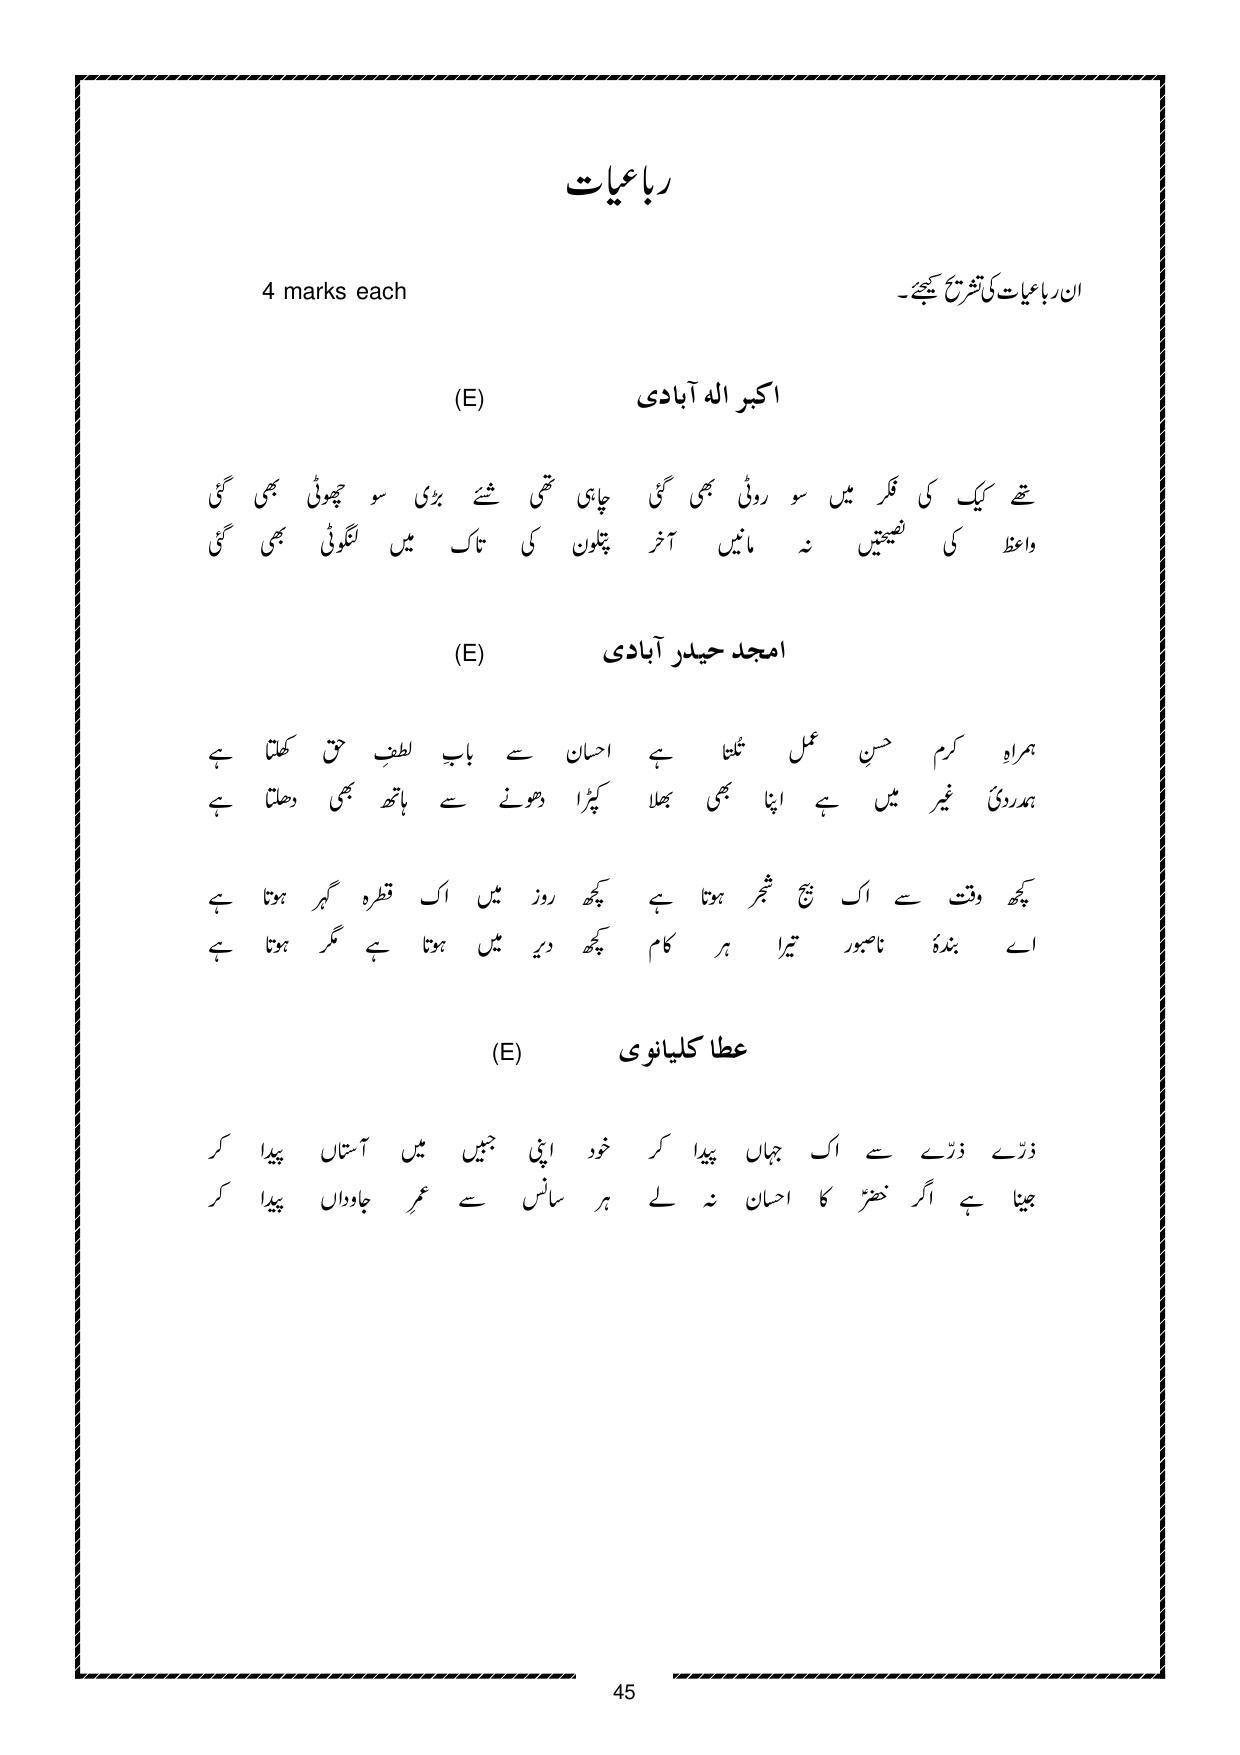 رباعیات
ان رباعیات کی تشریح کیجئے۔ 4 marks each
اکبر الہ آبادی (E)
تھے کیک کی فکر میں سو روٹی بھی گئی چاہی تھی شئے بڑی سو چھوٹی بھی گئی
واعظ کی نصیحتیں نہ مانیں آخر پتلون کی تاک میں لنگوٹی بھی گئی
امجد حیدر آبادی (E)
ہمراہِ کرم حسنِ عمل تُلتا ہے احسان سے بابِ لطفِ حق کھلتا ہے
ہمدردیٔ غیر میں ہے اپنا بھی بھلا کپڑا دھونے سے ہاتھ بھی دھلتا ہے
کچھ وقت سے اک بیج شجر ہوتا ہے کچھ روز میں اک قطرہ گہر ہوتا ہے
اے بندۂ ناصبور تیرا ہر کام کچھ دیر میں ہوتا ہے مگر ہوتا ہے
عطا کلیانوی (E)
ذرّے ذرّے سے اک جہاں پیدا کر خود اپنی جبیں میں آستاں پیدا کر
جینا ہے اگر خضرؑ کا احسان نہ لے ہر سانس سے عمرِ جاوداں پیدا کر
45